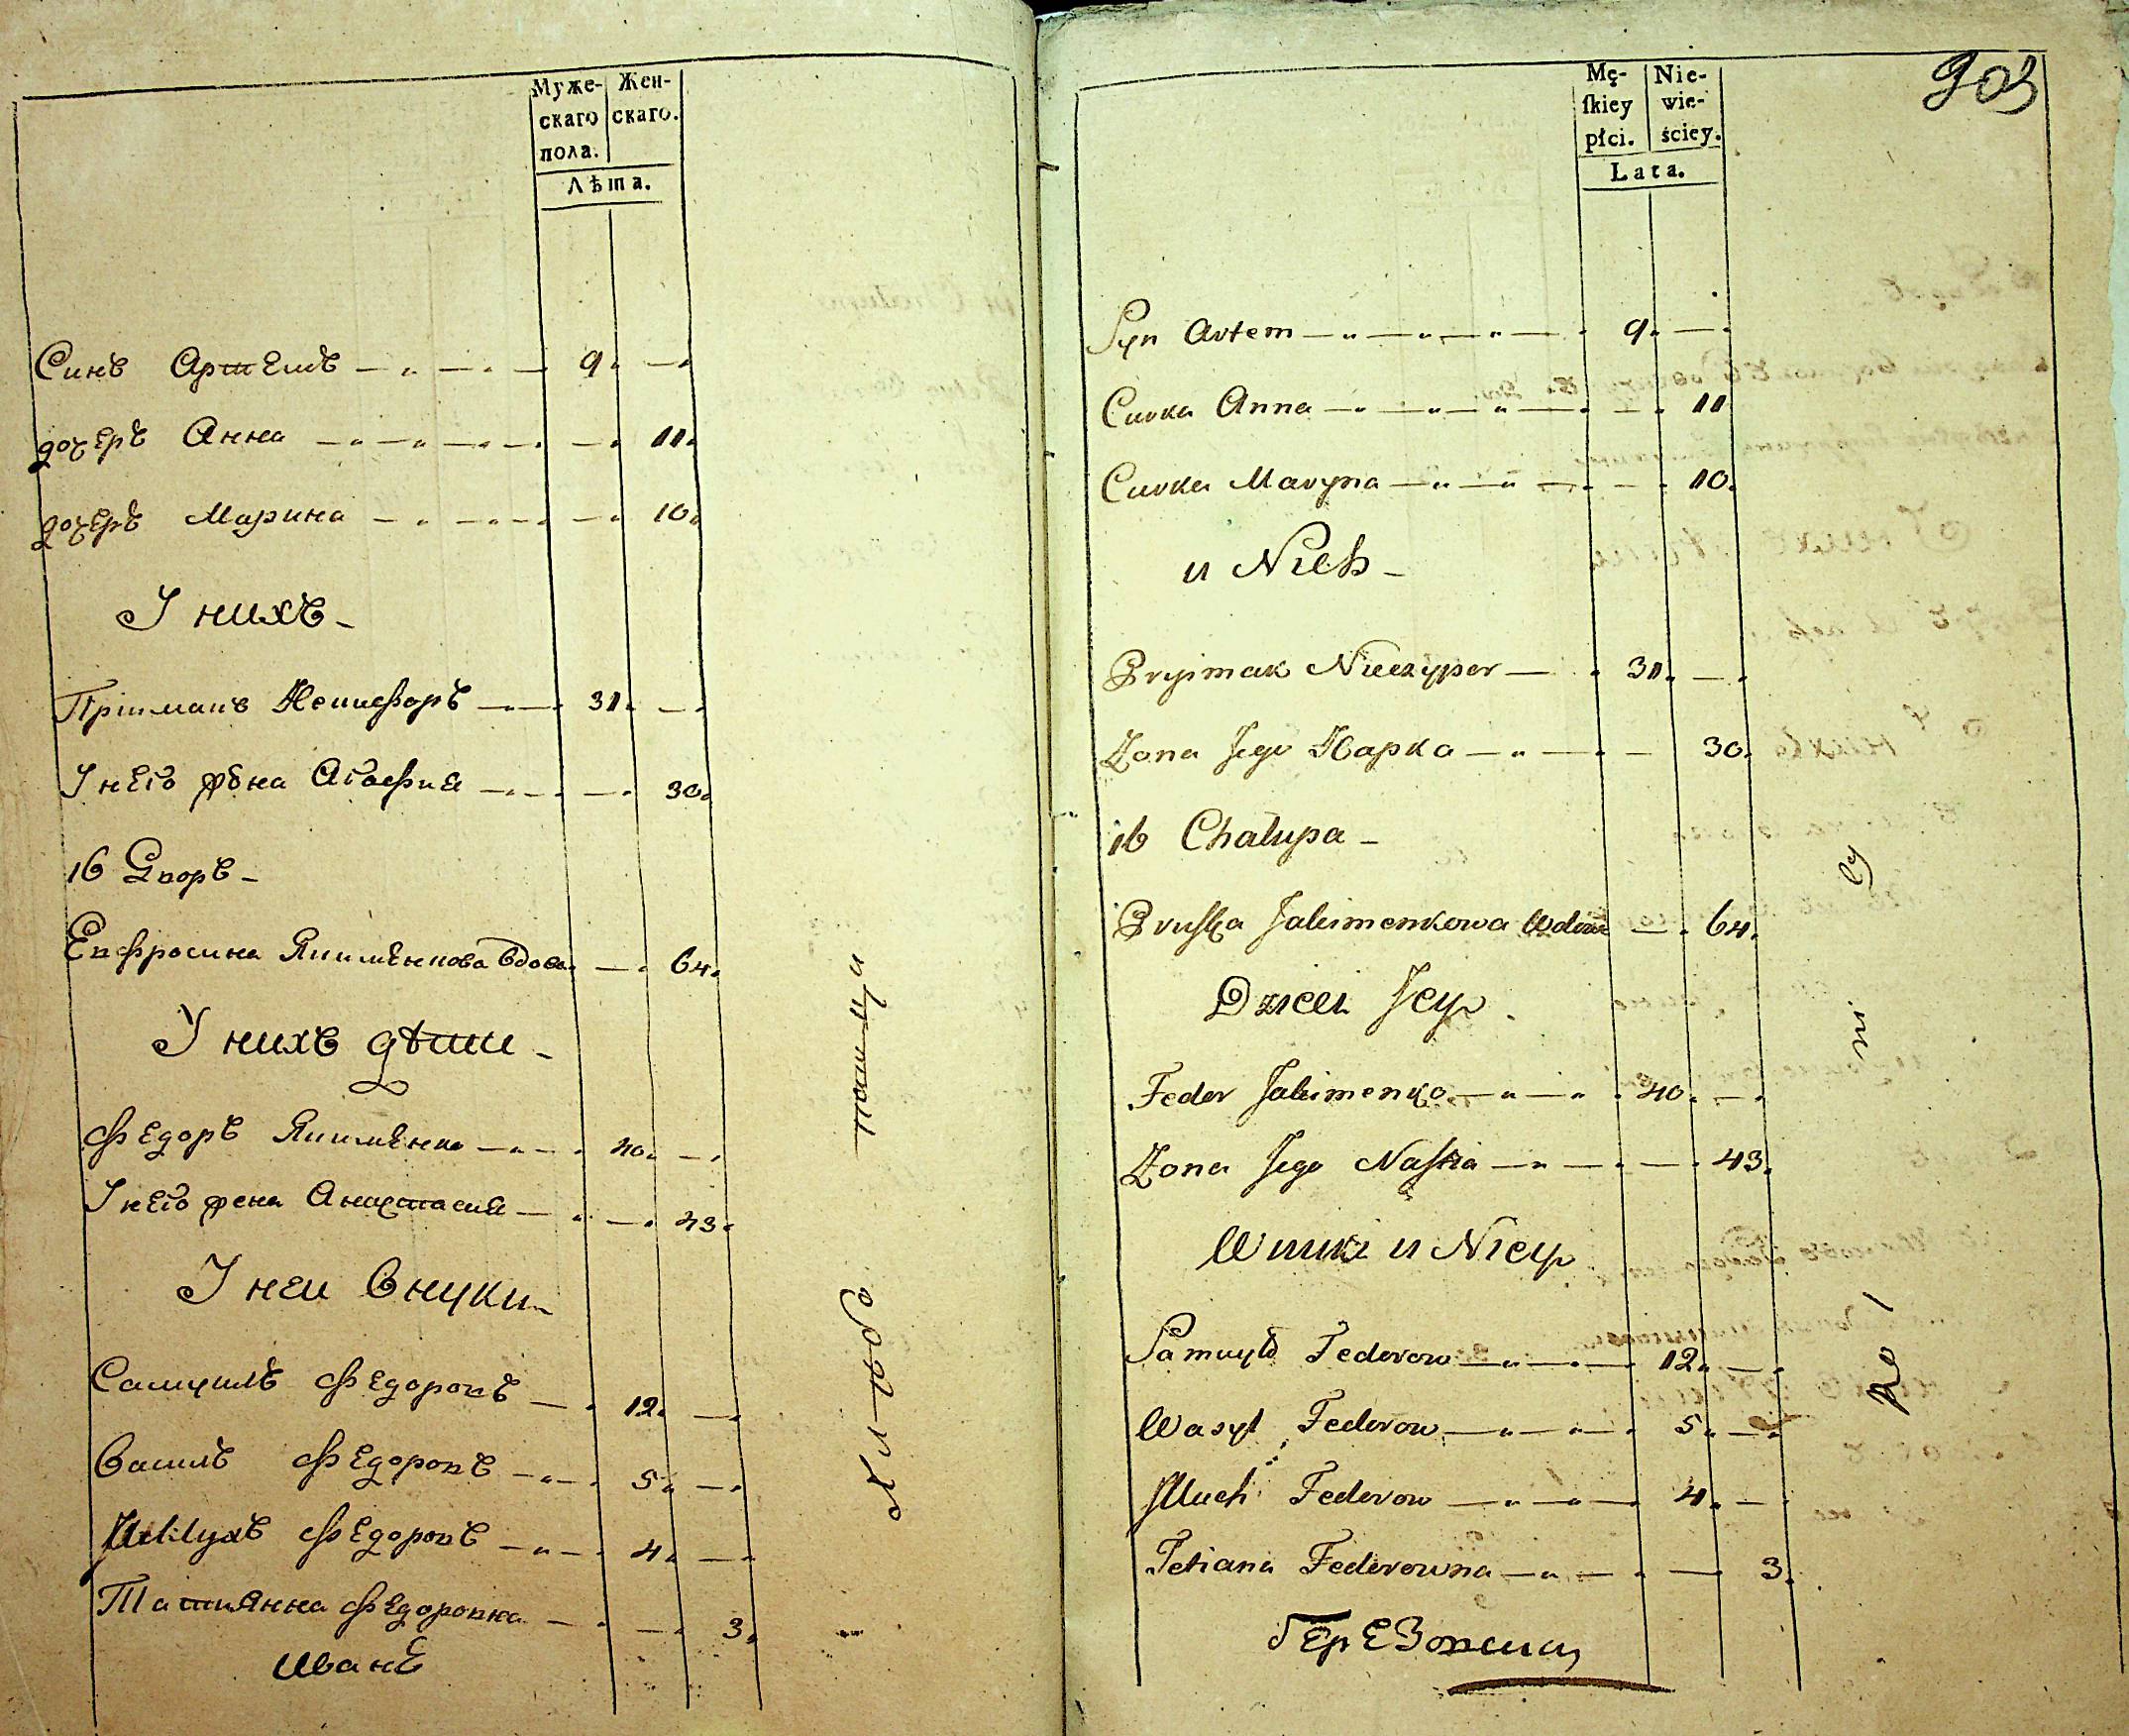 Муже- Жен-
скаго скаго.
пола.
Лѣта.
Синъ Артемъ 9.
дочеръ Анна 11.
дочеръ Марина 10.
У нихъ
Пріимакъ Никифоръ 31.
У него жена Агафия 30.
16 Дворъ
Евфросина Якименкова вдова 64.
У нихъ дѣти
Федоръ Якименко 40.
У него жена Анастасия 43.
У неи внуки
Самуилъ Федоровъ 12.
Василь Федоровъ 5.
Федоровъ 4.
Татиянна Федоровна 3.
Иване
903
Mę- Nie-
ſkiey wie-
płci. ściey.
Lata.
Syn Artem 9.
Curka Anna 11
Curka Maryna 10.
u Nich
Pryimak Niczypor 31.
Zona Jego 30.
16 Chałupa
Pruſka Jakimenkowa Wdowa 64.
Dzieci Jey
Fedor Jakimenko 40.
Zona Jego Naſtia 43.
Wnuki u Niey
Samuyło Fedorow 12.
Wasyl Fedorow 5.
Fedorow 4.
Tetiana Fedorowna 3.